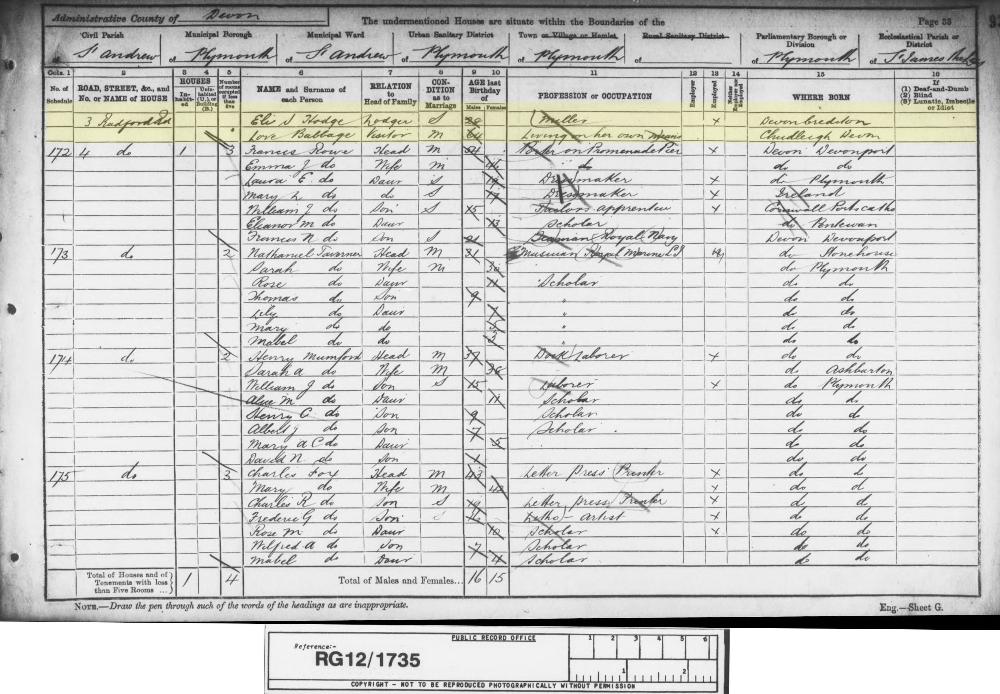 Administrative County of Devon The undermentioned Houses are situate within the Boundaries of the Page 33
Civil Parish Municipal Borough Municipal Ward Urban Sanitary District Town or Village or Hamlet Rural Sanitary District Parliamentary Borough or Division Ecclesiastical Parish or District
St Andrew of Plymouth St Andrew of Plymouth of Plymouth of of Plymouth of St James the Less
Cols. 1 2 3 4 5 6 7 8 9 10 11 12 13 14 15 16
No. of Schedule ROAD, STREET, &c., and No. or NAME of HOUSE HOUSES Inhabited Uninhabited (U.) or Building (B.) Number of rooms occupied if less than five NAME and Surname of each Person RELATION to Head of Family CONDITION as to Marriage AGE last Birthday of Males Females PROFESSION or OCCUPATION Employer Employed Neither Employer nor Employed WHERE BORN If (1) Deaf-and-Dumb (2) Blind (3) Lunatic, Imbecile or Idiot
3 Radford Rd Eli S Hodge Lodger S 28 Miller x Devon Crediton
Love Babbage Visitor M 64 Living on her own means Chudleigh Devon
172 4 do 1 3 Frances Rowe Head M 54 Porter on Promenade Pier x Devon Devonport
Emma J do Wife M 46 do do do
Laura E do Daur S 19 Dressmaker x do Plymouth
Mary L do do S 17 Dressmaker x Ireland
William J do Son S 15 Tailors apprentice x Cornwall Portscatho
Eleanor M do Daur 13 Scholar do Pentewan
Frances N do Son S 21 Seaman Royal Navy Devon Devonport
173 do 2 Nathanuel Tavinner Head M 31 Musician Royal Marine do Stonehouse
Sarah do Wife M 30 do Plymouth
Rose do Daur 11 Scholar do do
Thomas do Son 9 " do do
Lily do Daur 7 " do do
Mary do do 5 " do do
Mabel do do 3 " do do
174 do 2 Henry Mumford Head M 37 Dock laborer x do do
Sarah A do Wife M 36 do Ashburton
William J do Son S 15 Laborer x do Plymouth
Alice M do Daur 11 Scholar do do
Henry C do Son 9 Scholar do do
Albert J do Son 7 Scholar do do
Mary A C do Daur 5 do do
David N do Son 1 do do
175 do 3 Charles Fox Head M 43 Letter Press Printer x do do
Mary do Wife M 42 x do do
Charles R do Son S 19 Letter press Printer x do do
Frederic G do Son S 16 Litho- Artist x do do
Rose M do Daur 10 Scholar x do do
Wilfred A do Son 7 Scholar do do
Mabel do Daur 4 Scholar do do
Total of Houses and of Tenements with less than Five Rooms ... 1 4 Total of Males and Females... 16 15
NOTE.—Draw the pen through such of the words of the headings as are inappropriate. Eng.—Sheet G.
PUBLIC RECORD OFFICE
1 2 3 4 5 6
Reference:-
RG12/1735
1 2
COPYRIGHT - NOT TO BE REPRODUCED PHOTOGRAPHICALLY WITHOUT PERMISSION